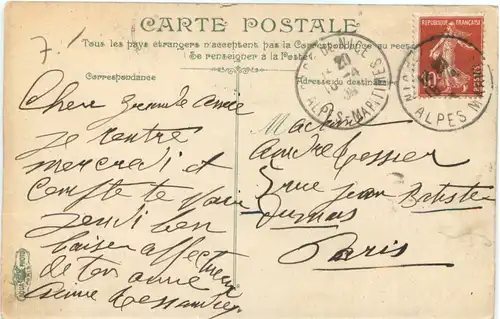 7.
CARTE POSTALE
Tous les pays étrangers n'acceptent pas la Correspondance au recto
Se renseigner à la Poste
Correspondance
Adresse du destinataire
Chere grande amie
je rentre
mercredi et
compte te voir
jeudi bon
baiser affectueux
de ton amie
M
André Messier
rue Jean Batiste
Dumas
Paris
REPUBLIQUE FRANÇAISE
10
NICE
ALPES MARITIMES
20
ALPES M